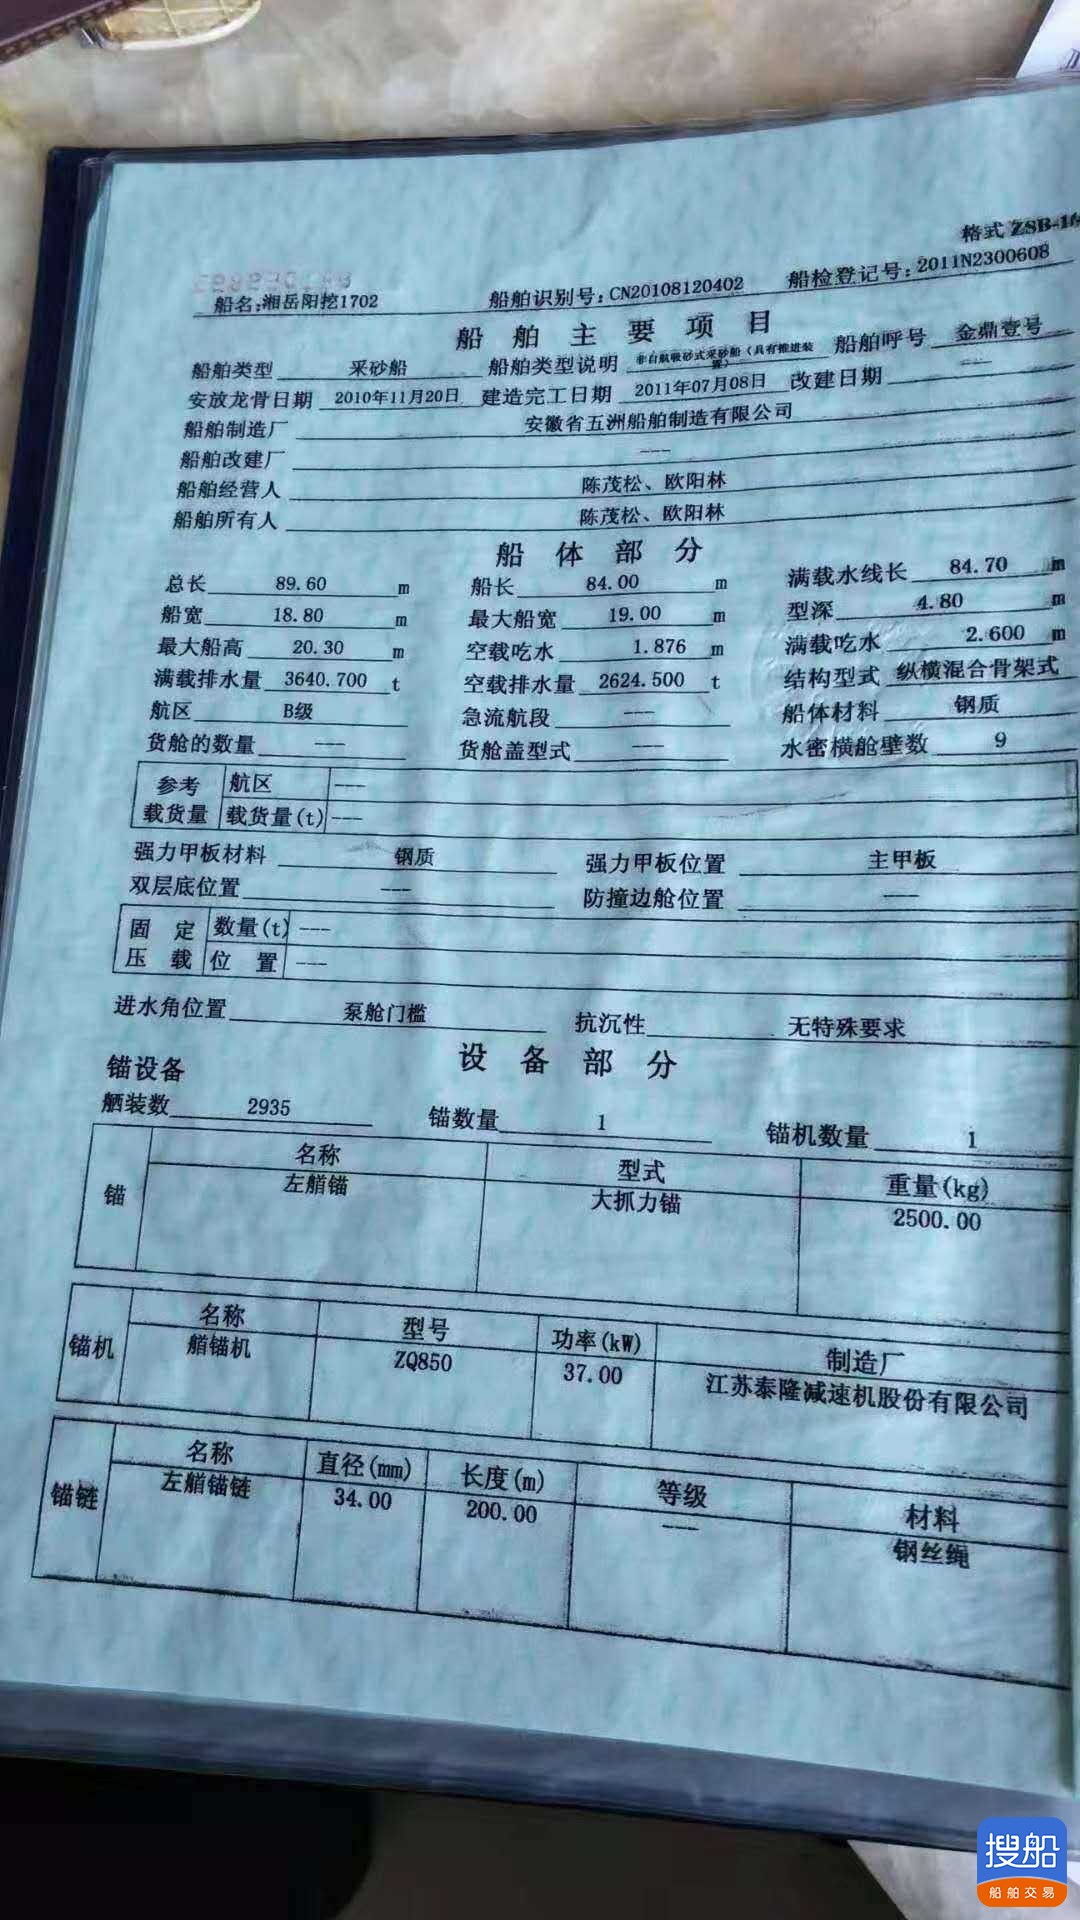 格式 ZSB-1
船名:湘岳阳挖1702 船舶识别号:CN20108120402 船检登记号:2011N2300608
船舶主要项目
船舶类型 采砂船 船舶类型说明 非自航吸砂式采砂船(具有推进装置) 船舶呼号 金鼎壹号
安放龙骨日期 2010年11月20日 建造完工日期 2011年07月08日 改建日期 ---
船舶制造厂 安徽省五洲船舶制造有限公司
船舶改建厂 ---
船舶经营人 陈茂松、欧阳林
船舶所有人 陈茂松、欧阳林
船体部分
总长 89.60 m 船长 84.00 m 满载水线长 84.70 m
船宽 18.80 m 最大船宽 19.00 m 型深 4.80 m
最大船高 20.30 m 空载吃水 1.876 m 满载吃水 2.600 m
满载排水量 3640.700 t 空载排水量 2624.500 t 结构型式 纵横混合骨架式
航区 B级 急流航段 --- 船体材料 钢质
货舱的数量 --- 货舱盖型式 --- 水密横舱壁数 9
参考 航区 ---
载货量 载货量(t) ---
强力甲板材料 钢质 强力甲板位置 主甲板
双层底位置 --- 防撞边舱位置 ---
固定 数量(t) ---
压载 位置 ---
进水角位置 泵舱门槛 抗沉性 无特殊要求
设备部分
锚设备
舾装数 2935 锚数量 1 锚机数量 1
锚 名称 型式 重量(kg)
左艏锚 大抓力锚 2500.00
锚机 名称 型号 功率(kW) 制造厂
艏锚机 ZQ850 37.00 江苏泰隆减速机股份有限公司
锚链 名称 直径(mm) 长度(m) 等级 材料
左艏锚链 34.00 200.00 --- 钢丝绳
搜船
船舶交易